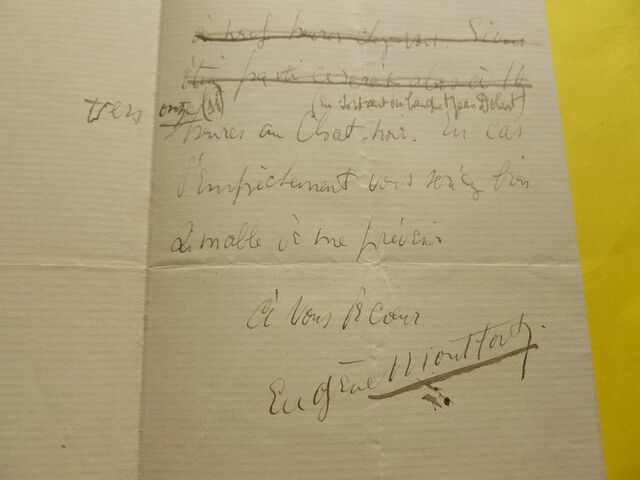 à neuf heures chez vous. Si vous
étiez parti ce serait alors à 14
très onze (11) (en sortant du banquet Jean Dolent)
heures au Chat-noir. En cas
d'Empêchement vous seriez bien
aimable de me prévenir
à vous de cœur
Eugène Montfort.